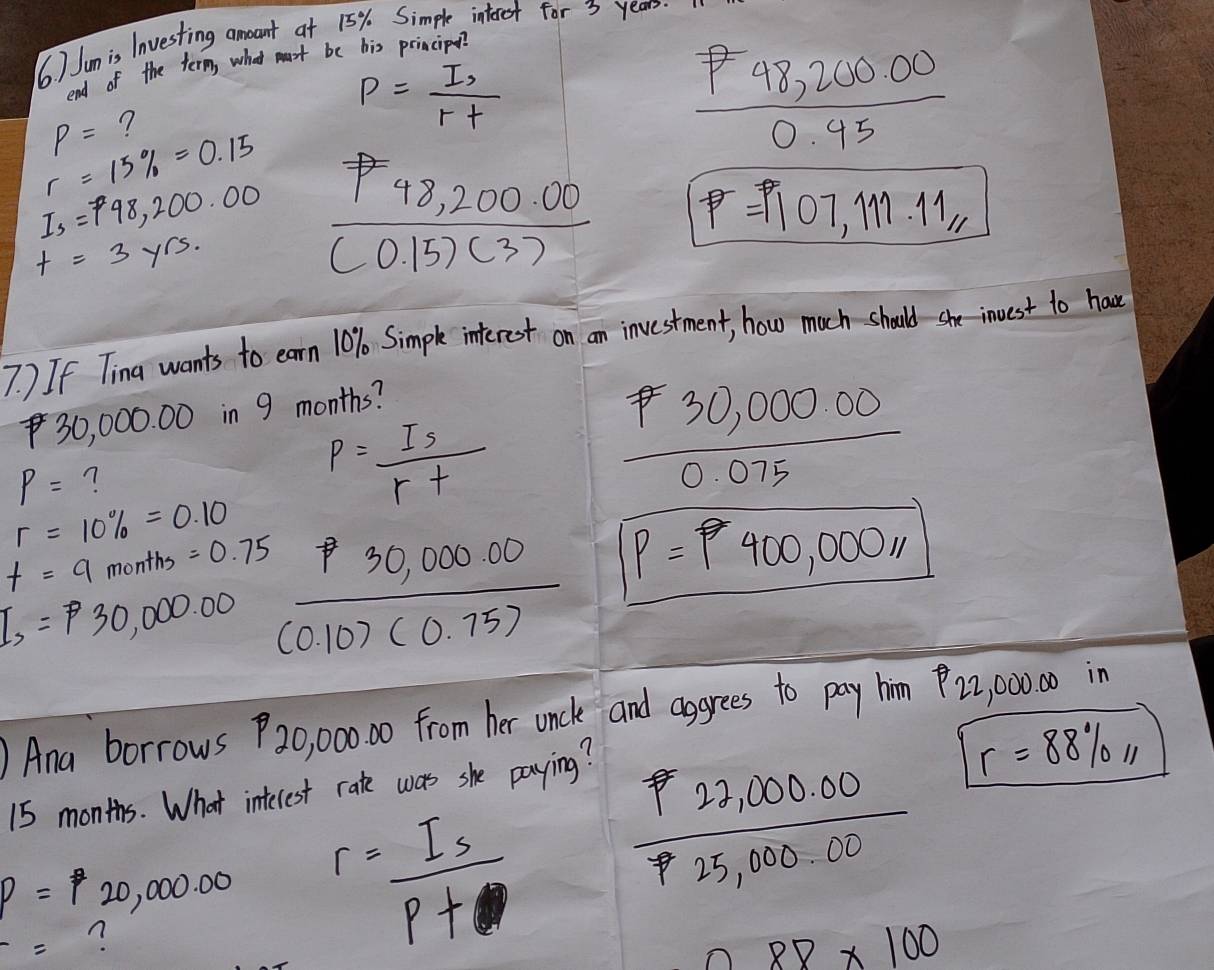 6.) Jun is Investing amount at 15% Simple interest for 3 years.
end of the term, what must be his principal?
P = ?
r = 15% = 0.15
Is = ₱48,200.00
t = 3 yrs.
P = Is / rt
₱48,200.00
(0.15)(3)
₱48,200.00
0.45
₱ = ₱107,111.11,,
7.) If Tina wants to earn 10% Simple interest on an investment, how much should she invest to have
₱30,000.00 in 9 months?
P = ?
r = 10% = 0.10
t = 9 months = 0.75
Is = ₱30,000.00
P = Is / rt
₱ 30,000.00
(0.10)(0.75)
₱ 30,000.00
0.075
P = ₱ 400,000,,
) Ana borrows ₱20,000.00 from her uncle and aggrees to pay him ₱22,000.00 in
15 months. What interest rate was she paying?
P = ₱ 20,000.00
= ?
r = Is / Pt
₱ 22,000.00
₱ 25,000.00
0.88 x 100
r = 88%,,